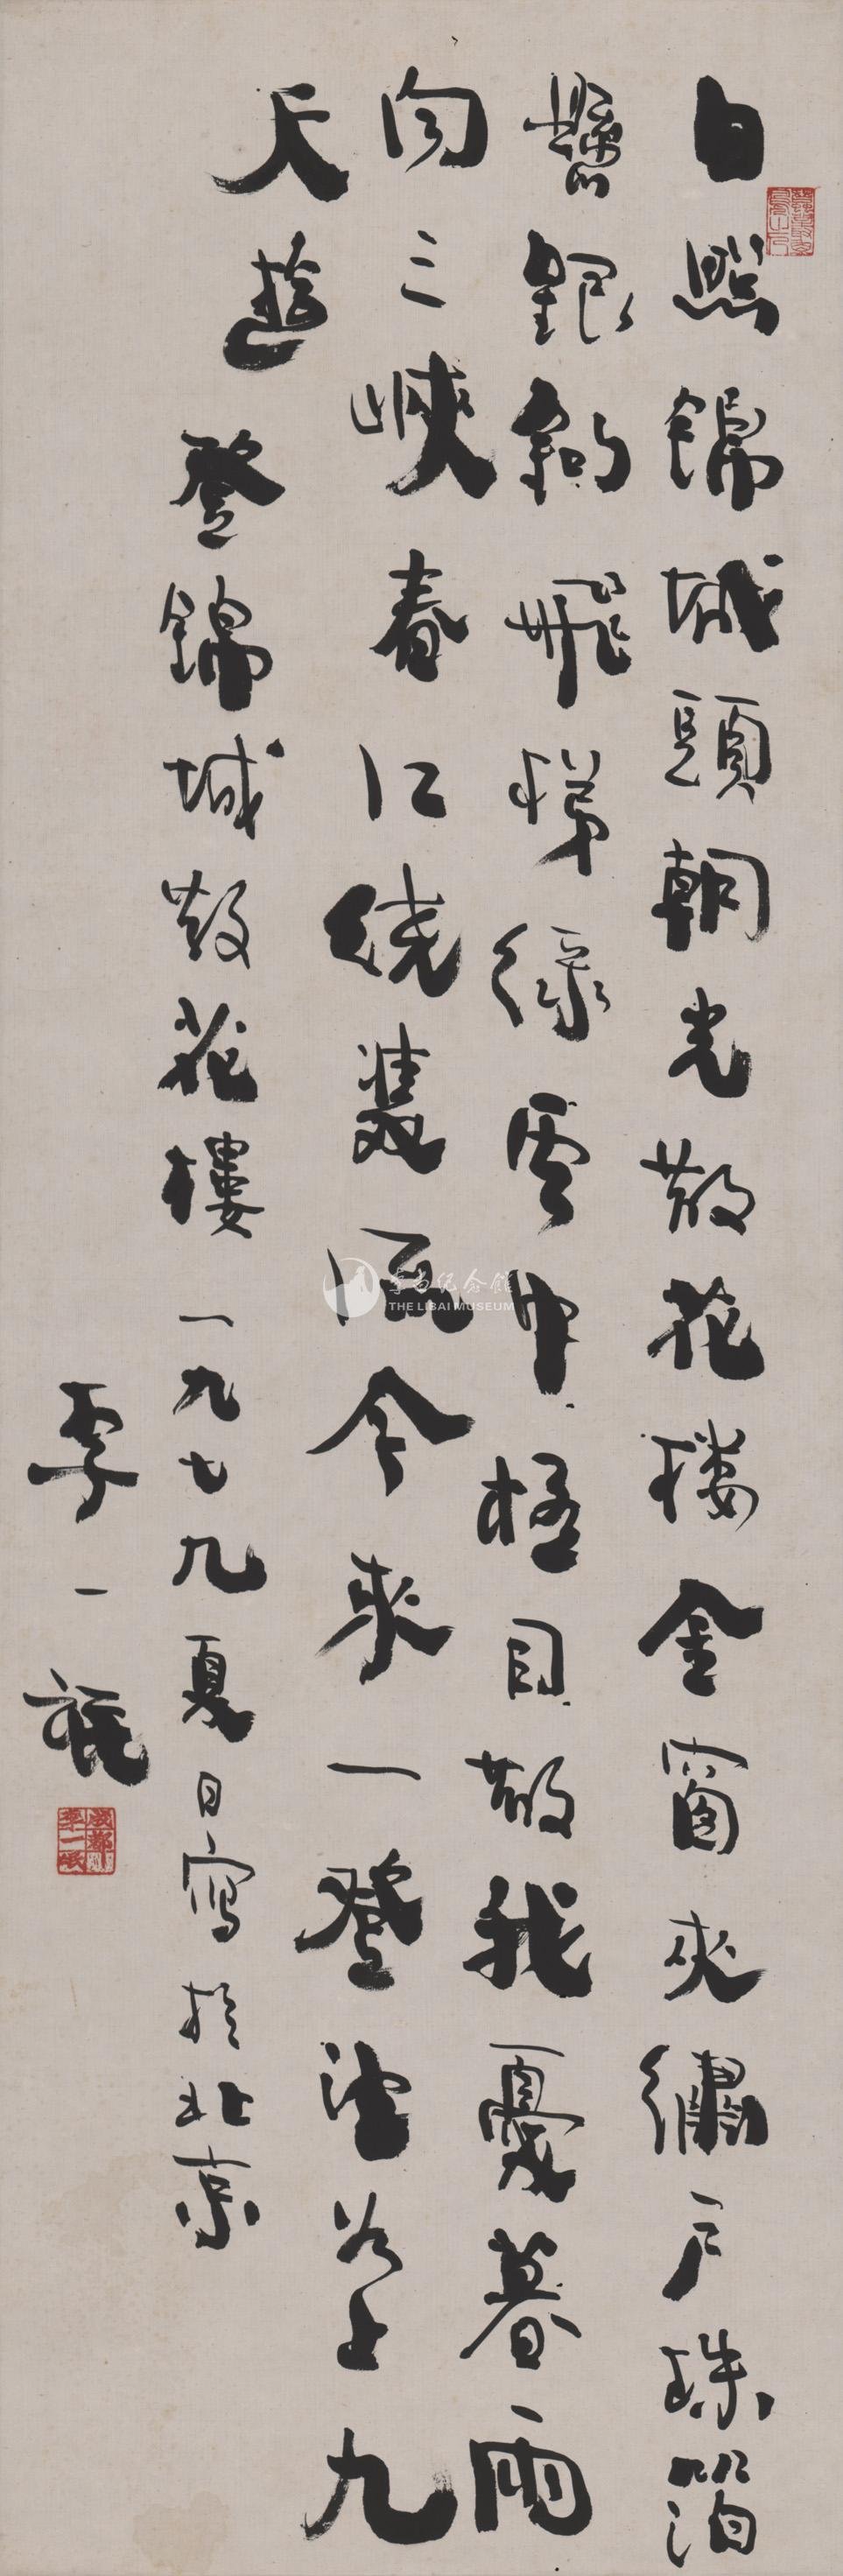 日照錦城頭朝光散花楼金窗夾繡戶珠箔
懸銀鉤飛梯緑雲中極目散我憂暮雨
向三峽春江繞雙流今來一登望如上九
天遊 登錦城散花樓 一九七九夏日寫於北京
李一氓
成都李一氓
李白纪念馆
THE LIBAI MUSEUM